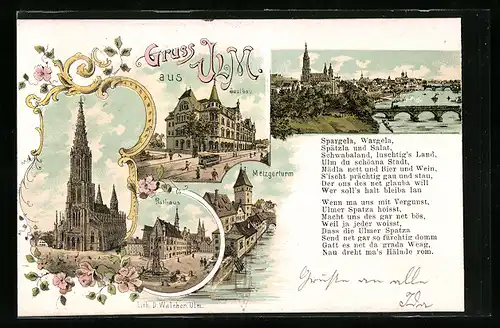 Gruss
aus
ULM.
Saalbau
Metzgerturm
Rathaus
Lith. D. Walcher, Ulm.
Spargela, Wargela,
Spätzla und Salat,
Schwabaland, luschtig's Land,
Ulm du schöana Stadt,
Mädla nett und Bier und Wein,
S'ischt prächtig gau und stau,
Der ons des net glauba will
Wer soll's halt bleiba lau
Wenn ma uns mit Vergunst,
Ulmer Spatza hoisst,
Macht uns des gar net bös,
Weil ja jeder woisst,
Dass die Ulmer Spatza
Send net gar so fürchtig domm
Gatt es net da grada Weag,
Nau dreht ma's Hälmle rom.
Grüße an alle
Ida